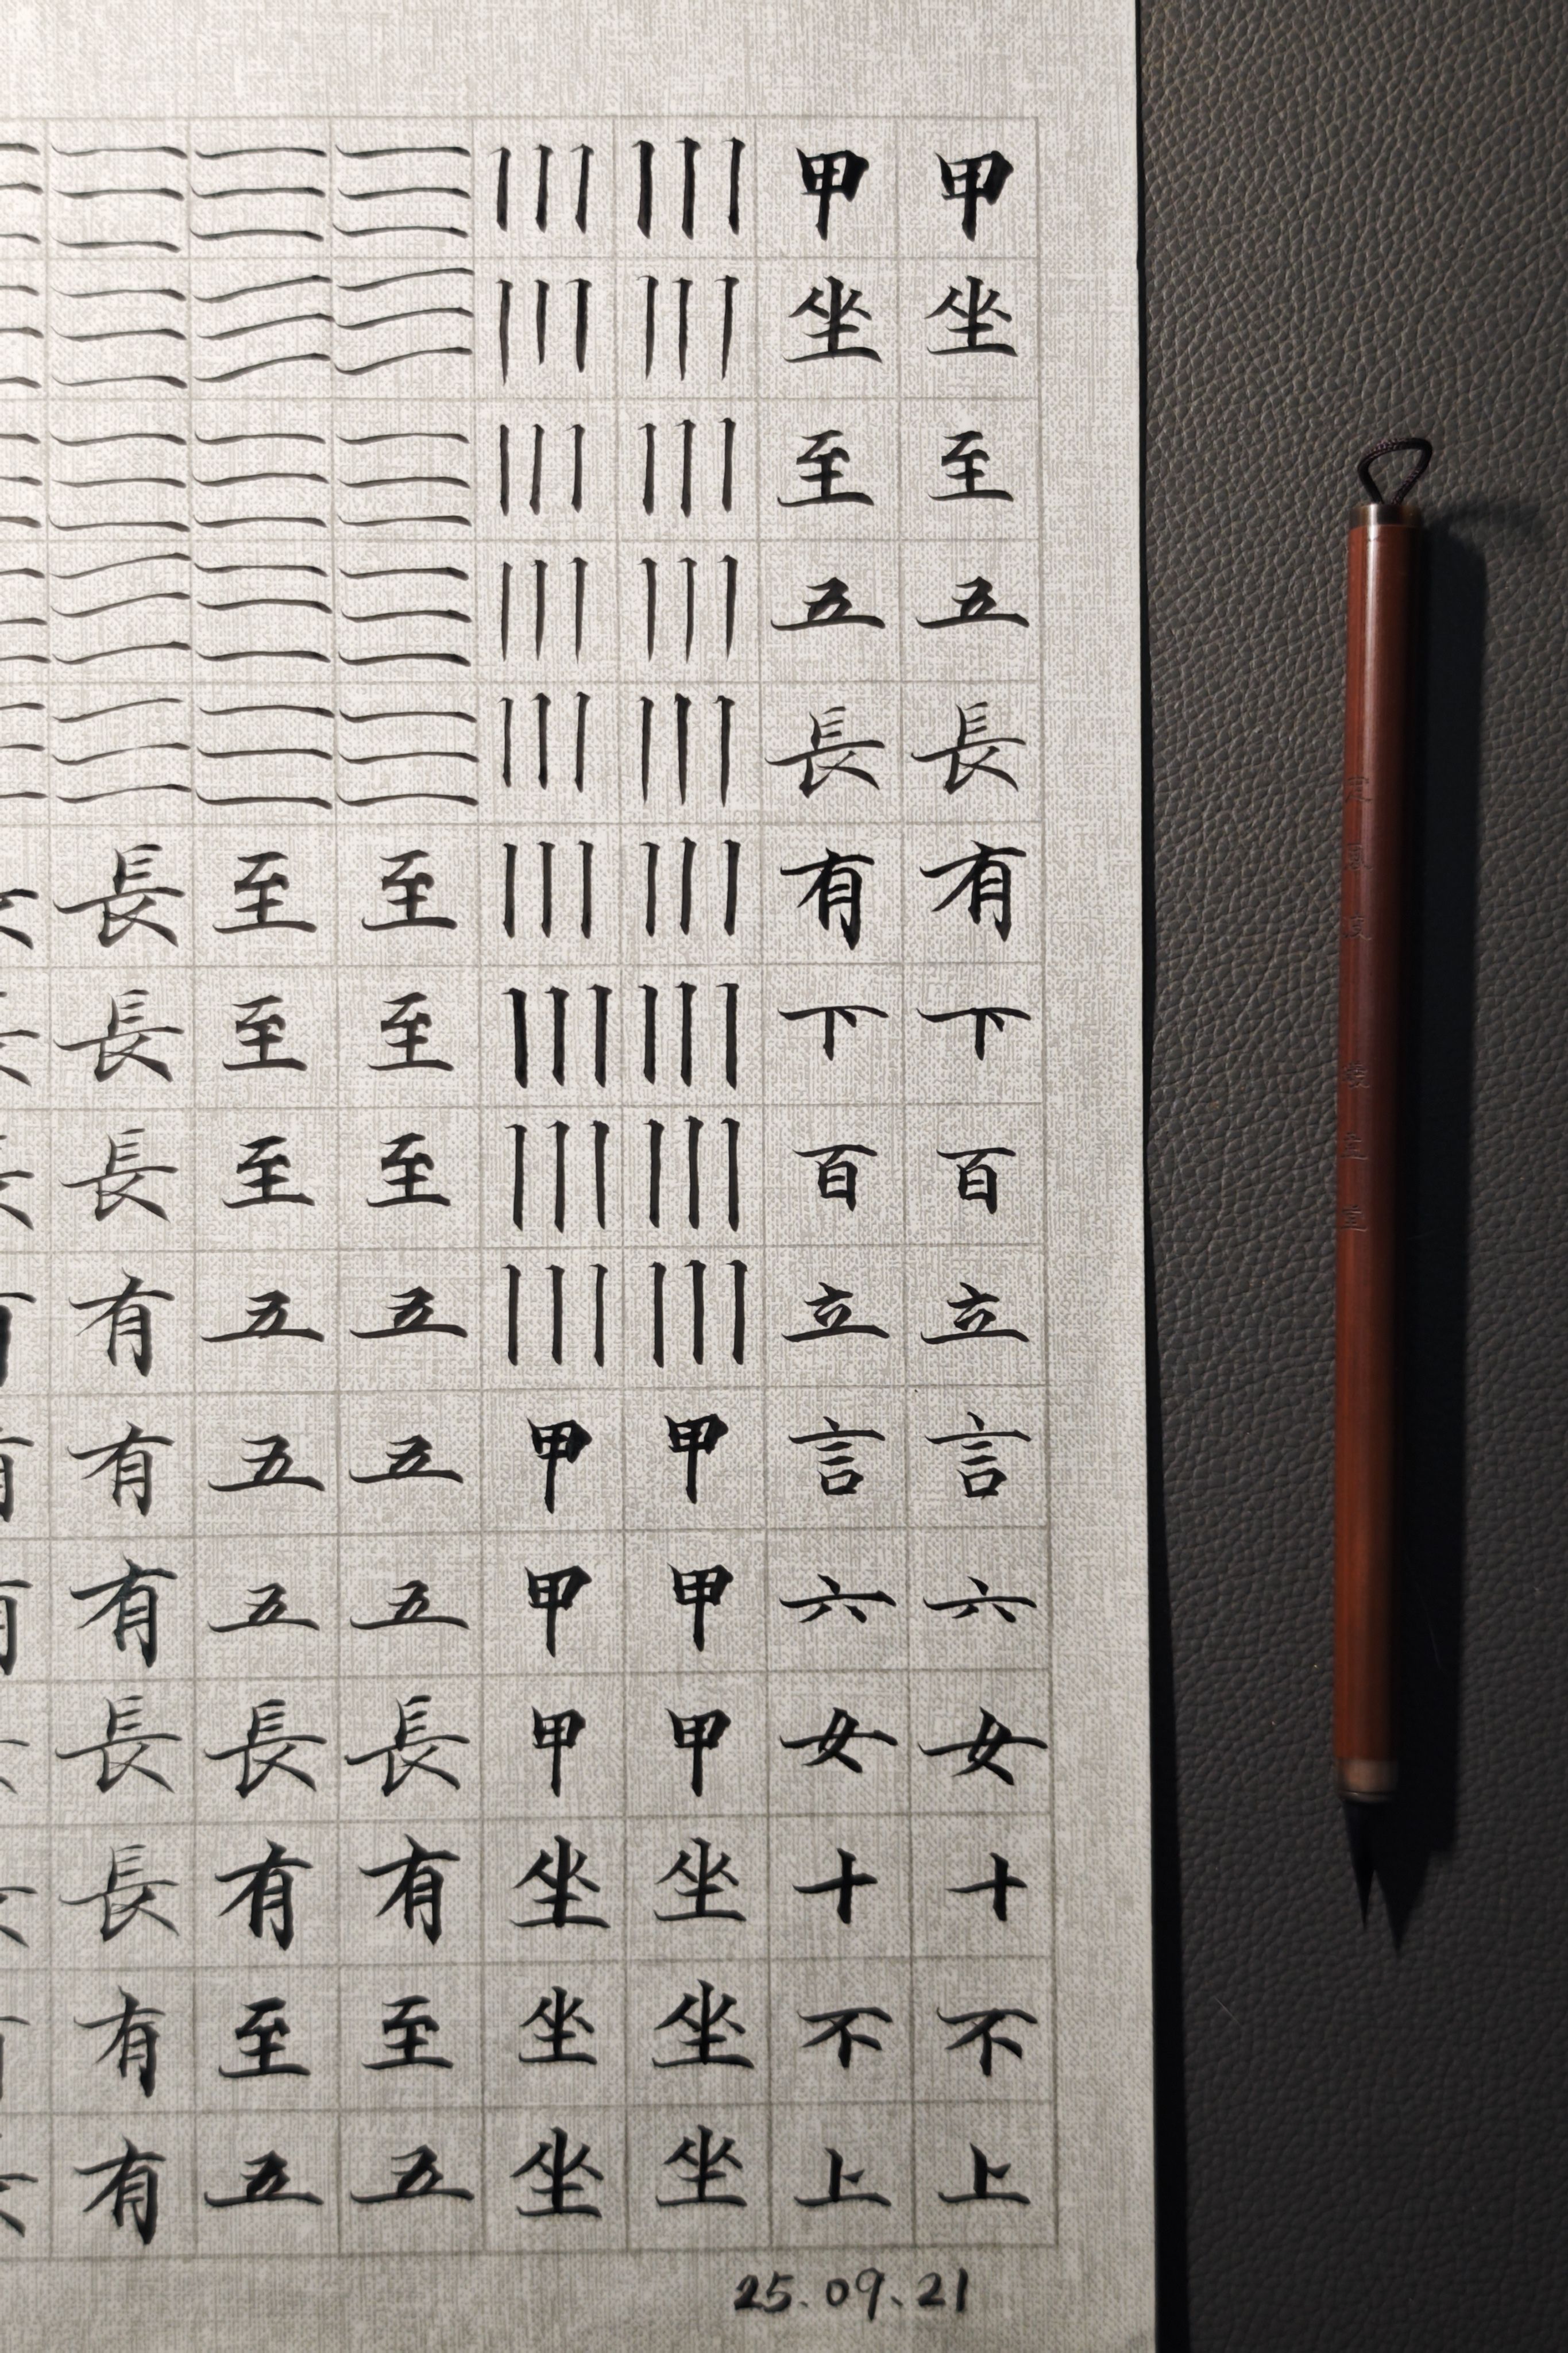 甲坐至五長有下百立言六女十不上
甲坐至五長有下百立言六女十不上
甲甲甲坐坐坐
甲甲甲坐坐坐
至至至五五五長有至五
至至至五五五長有至五
長長長有有有長長有有
25.09.21